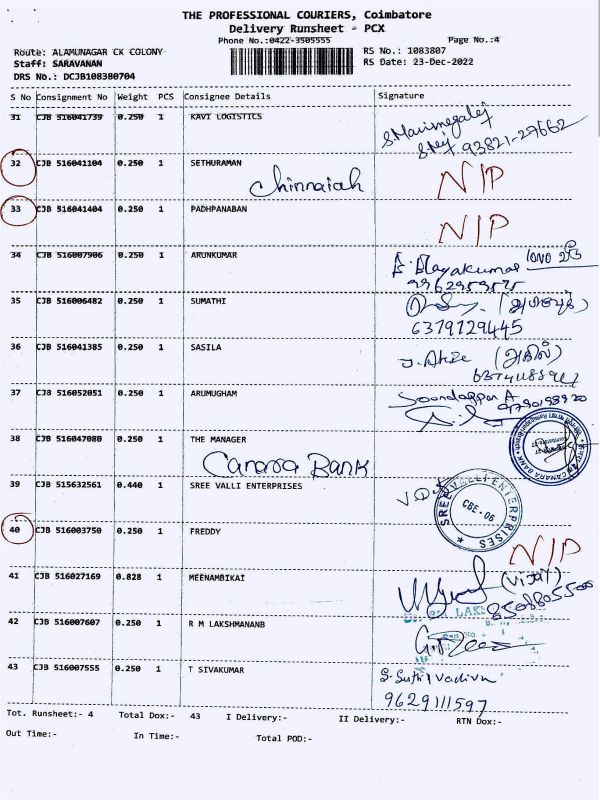 THE PROFESSIONAL COURIERS, Coimbatore
Delivery Runsheet - PCX
Phone No.:0422-3505555 Page No.:4
Route: ALAMUNAGAR CK COLONY RS No.: 1083807
Staff: SARAVANAN RS Date: 23-Dec-2022
DRS No.: DCJB108380704
S No Consignment No Weight PCS Consignee Details Signature
31 CJB 516041739 0.250 1 KAVI LOGISTICS
93821-27662
32 CJB 516041104 0.250 1 SETHURAMAN N/P
Chinnaiah
33 CJB 516041404 0.250 1 PADHPANABAN N/P
34 CJB 516007906 0.250 1 ARUNKUMAR
35 CJB 516006482 0.250 1 SUMATHI
6379729445
36 CJB 516041385 0.250 1 SASILA
37 CJB 516052051 0.250 1 ARUMUGHAM
38 CJB 516047080 0.250 1 THE MANAGER
Canara Bank
CANARA BANK
39 CJB 515632561 0.440 1 SREE VALLI ENTERPRISES
SREE VALLI ENTERPRISES
CBE - 06
40 CJB 516003750 0.250 1 FREDDY N/P
41 CJB 516027169 0.828 1 MEENAMBIKAI (VIJAY)
8508805500
42 CJB 516007607 0.250 1 R M LAKSHMANANB
43 CJB 516007555 0.250 1 T SIVAKUMAR
9629111597
Tot. Runsheet:- 4 Total Dox:- 43 I Delivery:- II Delivery:- RTN Dox:-
Out Time:- In Time:- Total POD:-